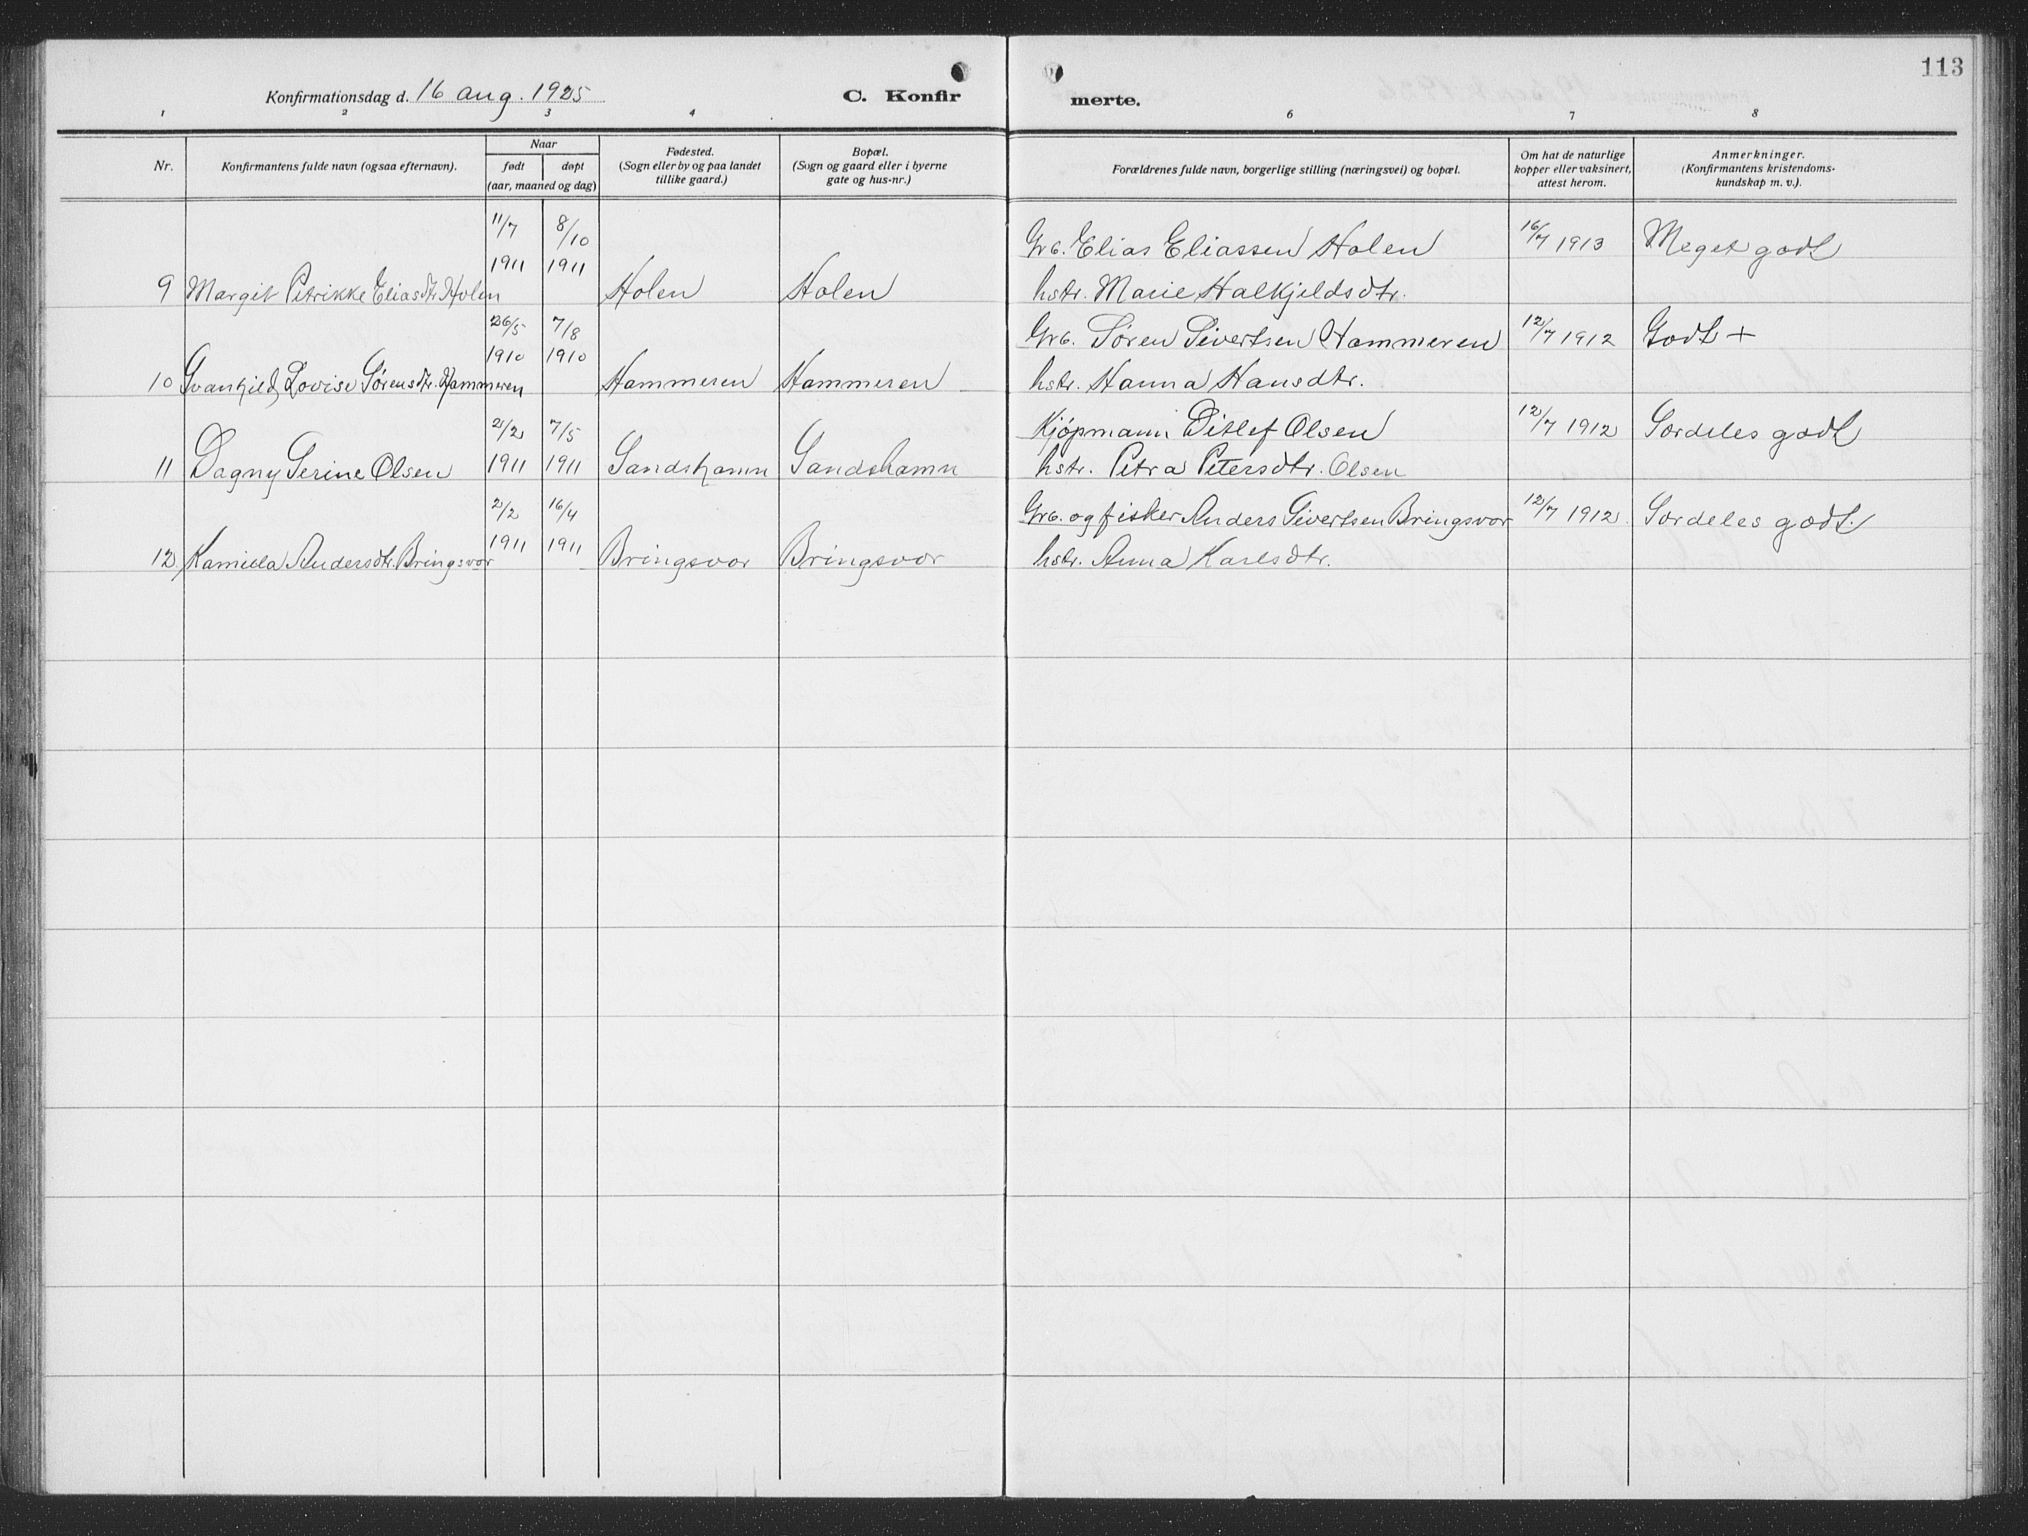 113
Konfirmationsdag d. 16 aug. 1925 C. Konfir merte.
1 2 3 4 6 7 8
Nr. Konfirmantens fulde navn (ogsaa efternavn). Naar født døpt (aar, maaned og dag) Fødested. (Sogn eller by og paa landet tillike gaard.) Bopæl. (Sogn og gaard eller i byerne gate og hus-nr.) Forældrenes fulde navn, borgerlige stilling (næringsvei) og bopæl. Om hat de naturlige kopper eller vaksinert, attest herom. Anmerkninger. (Konfirmantens kristendoms-kundskap m. v.).
11/7 8/10 Grb. Elias Eliassen Holen 16/7 1913 Meget godt
1911 1911
9 Margit Petrikke Eliasdtr. Holen Holen Holen hstr. Marie Halkjeldsdtr.
26/5 7/8 Grb. Søren Sivertsen Hammeren 12/7 1912 Godt +
1910 1910
10 Svanhild Lovise Sørensdtr. Hammeren Hammeren Hammeren hstr. Hanna Hansdtr.
2/2 7/5 Kjøpmann Ditlef Olsen 12/7 1912 Særdeles godt
11 Dagny Serine Olsen 1911 1911 Sandshamn Sandshamn hstr. Petra Petersdtr. Olsen
2/2 16/4 Grb. og fisker Anders Sivertsen Bringsvor 12/7 1912 Særdeles godt.
1911 1911
12 Kamilla Andersdtr. Bringsvor Bringsvor Bringsvor hstr. Anna Karlsdtr.